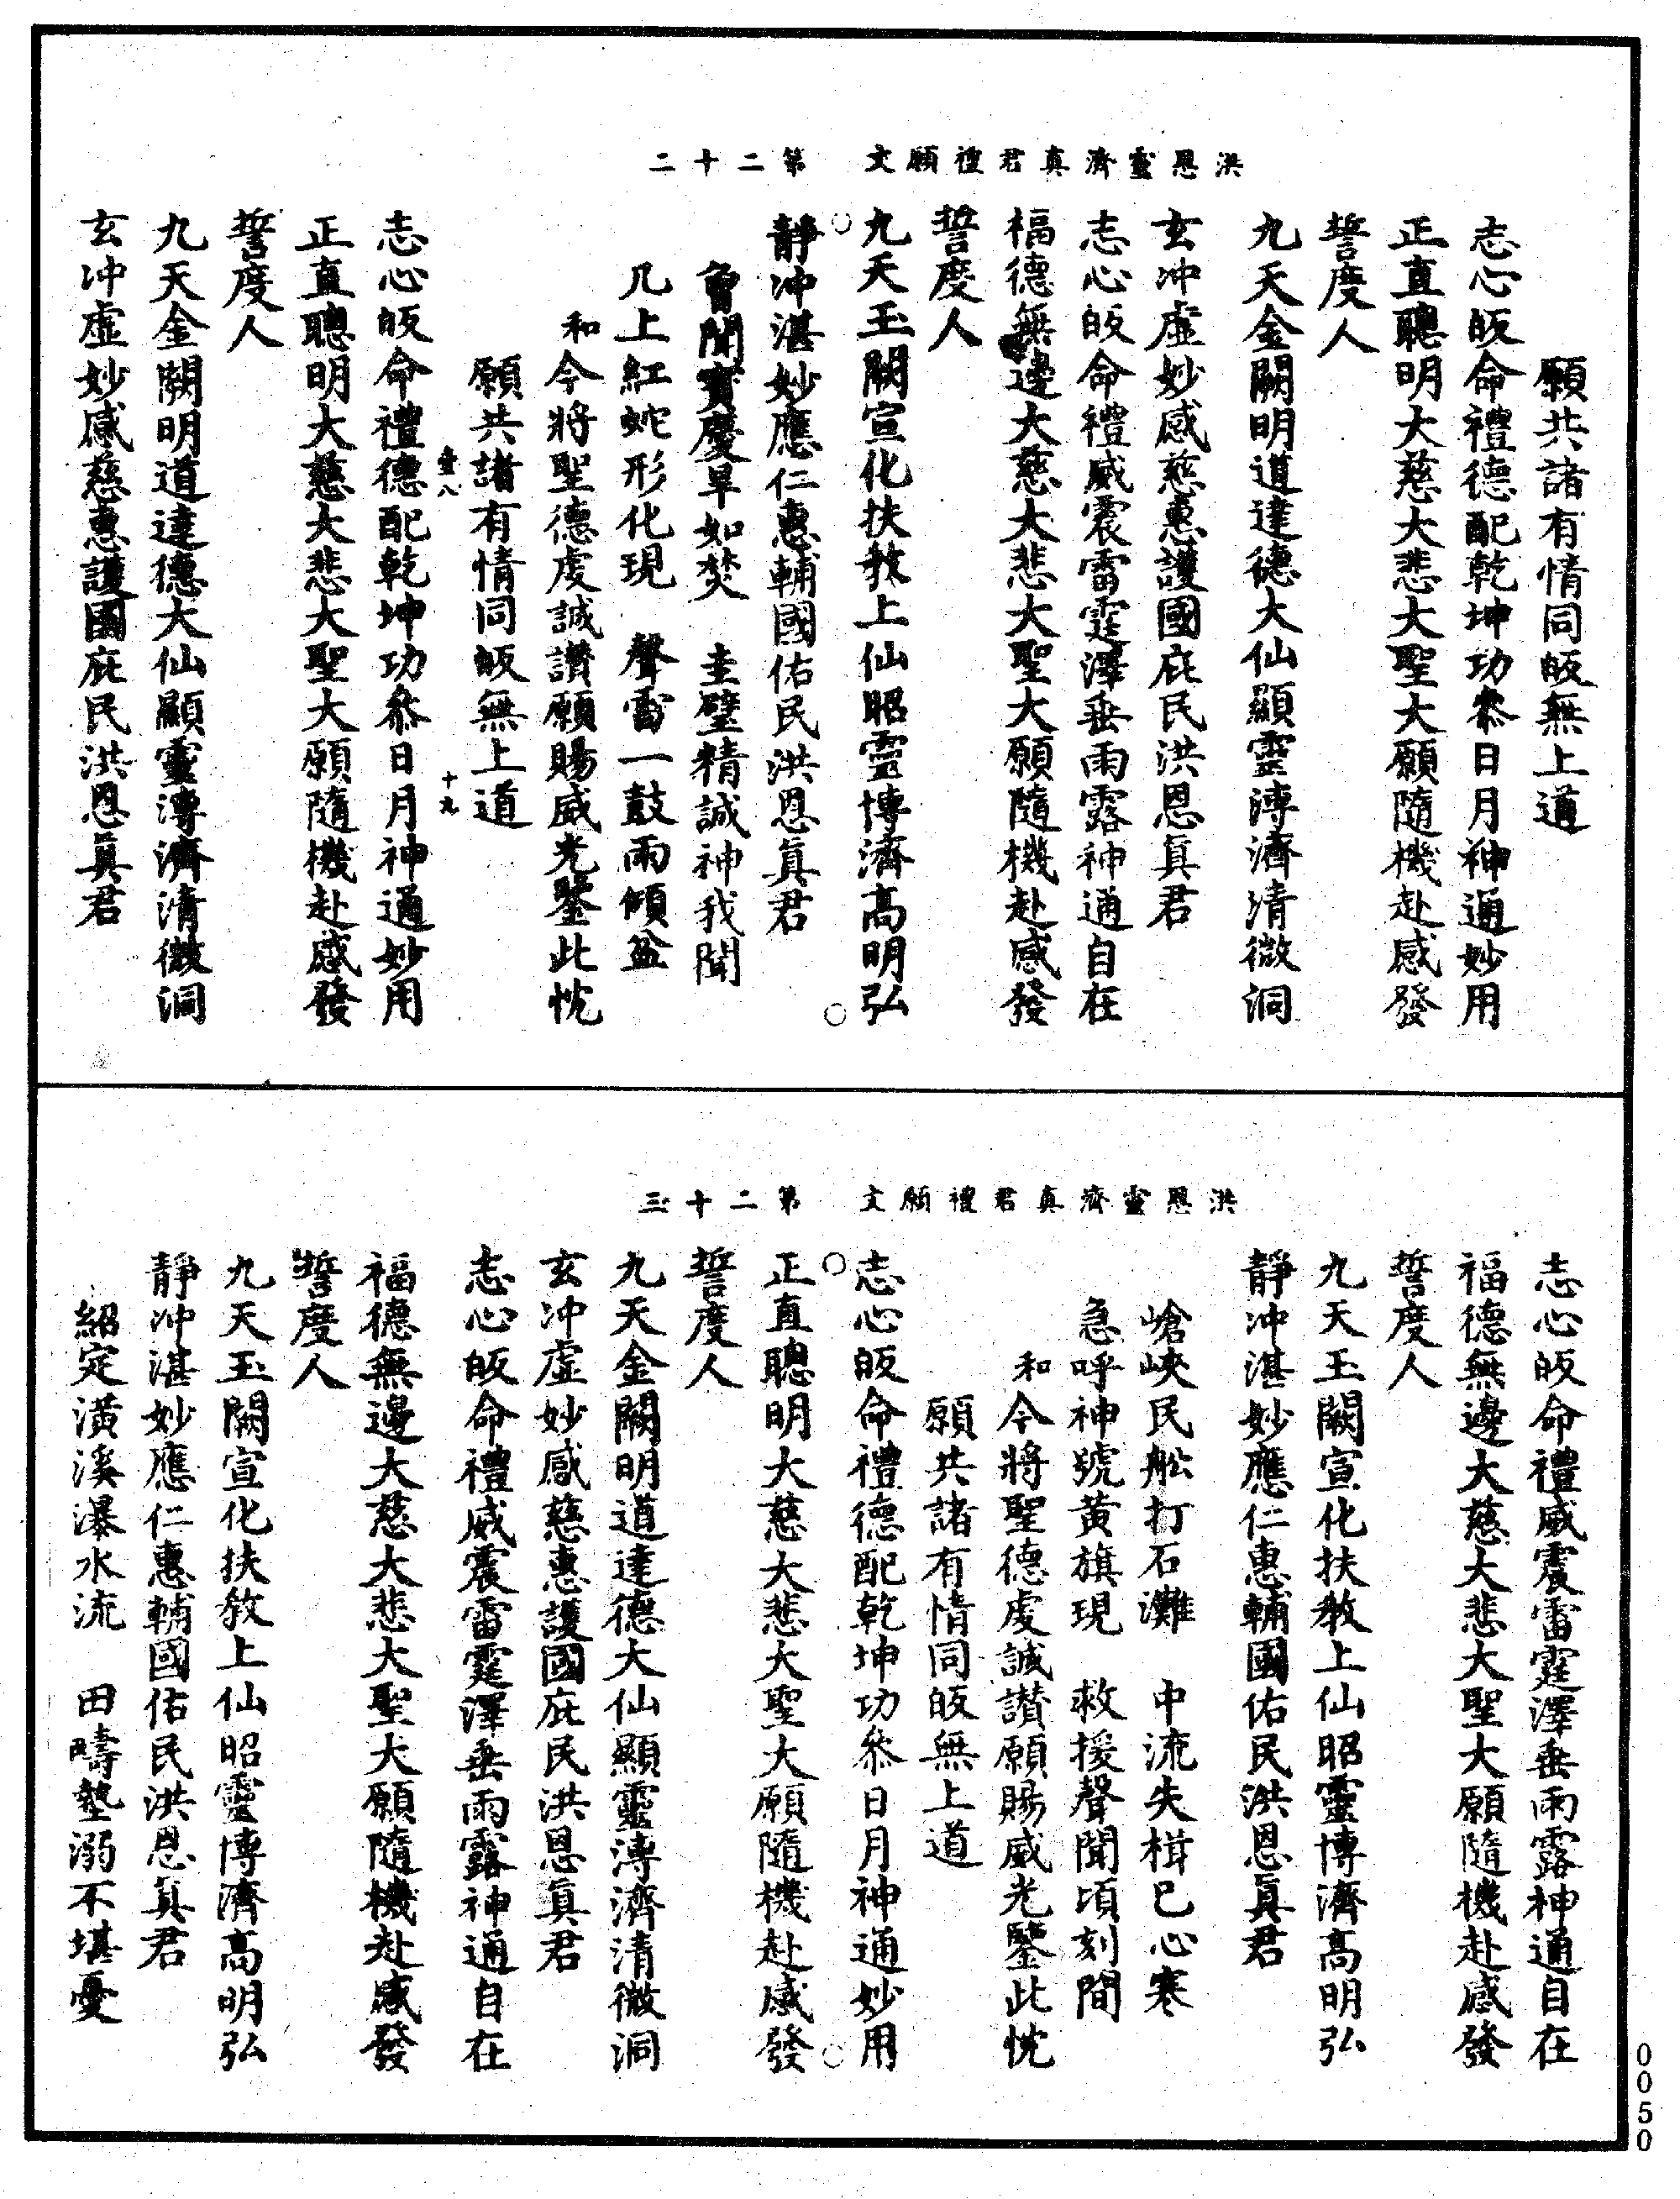 洪恩靈濟真君禮願文　第二十二
願共諸有情同皈無上道
志心皈命禮德配乾坤功叅日月神通妙用
正直聰明大慈大悲大聖大願隨機赴感發
誓度人
九天金闕明道達德大仙顯靈溥濟清微洞
玄冲虛妙感慈惠護國庇民洪恩真君
志心皈命禮威震雷霆澤垂雨露神通自在
福德無邊大慈大悲大聖大願隨機赴感發
誓度人
九天玉闕宣化扶教上仙昭靈博濟高明弘
靜冲湛妙應仁惠輔國佑民洪恩真君
曾聞寶慶旱如焚　圭璧精誠神我聞
几上紅蛇形化現　聲雷一鼓雨傾盆
和今將聖德虔誠讚願賜威光鑒此忱
願共諸有情同皈無上道
壹八　十九
志心皈命禮德配乾坤功叅日月神通妙用
正直聰明大慈大悲大聖大願隨機赴感發
誓度人
九天金闕明道達德大仙顯靈溥濟清微洞
玄冲虛妙感慈惠護國庇民洪恩真君
洪恩靈濟真君禮願文　第二十三
志心皈命禮威震雷霆澤垂雨露神通自在
福德無邊大慈大悲大聖大願隨機赴感發
誓度人
九天玉闕宣化扶教上仙昭靈博濟高明弘
靜冲湛妙應仁惠輔國佑民洪恩真君
嵢峽民舩打石灘　中流失楫已心寒
急呼神號黃旗現　救援聲聞頃刻間
和今將聖德虔誠讚願賜威光鑒此忱
願共諸有情同皈無上道
志心皈命禮德配乾坤功叅日月神通妙用
正直聰明大慈大悲大聖大願隨機赴感發
誓度人
九天金闕明道達德大仙顯靈溥濟清微洞
玄冲虛妙感慈惠護國庇民洪恩真君
志心皈命禮威震雷霆澤垂雨露神通自在
福德無邊大慈大悲大聖大願隨機赴感發
誓度人
九天玉闕宣化扶教上仙昭靈博濟高明弘
靜冲湛妙應仁惠輔國佑民洪恩真君
紹定潢溪瀑水流　田疇墊溺不堪憂
0050